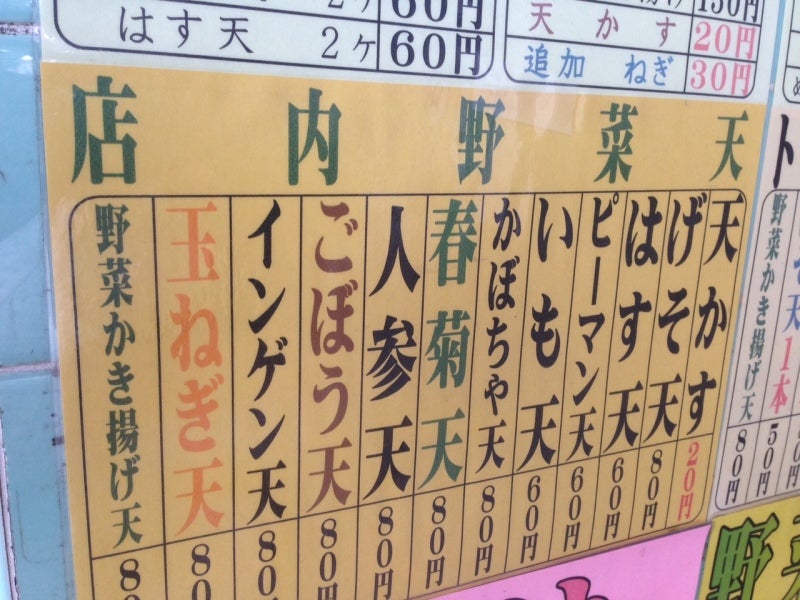 はす天 2ヶ 60円
60円
130円
天かす 20円
追加 ねぎ 30円
店内野菜天
天かす 20円
げそ天 80円
はす天 60円
ピーマン天 60円
いも天 60円
かぼちゃ天 80円
春菊天 80円
人参天 80円
ごぼう天 80
インゲン天 80
玉ねぎ天 80
野菜かき揚げ天 8
ト
天1本 50円
野菜かき揚げ天 80円
野菜